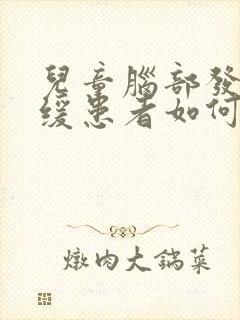 兒童腦部發
緩患者如何
燉肉大鍋菜